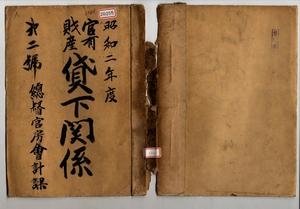 昭和二年度
官有
財産
貸下関係
才二號
總督官房會計課